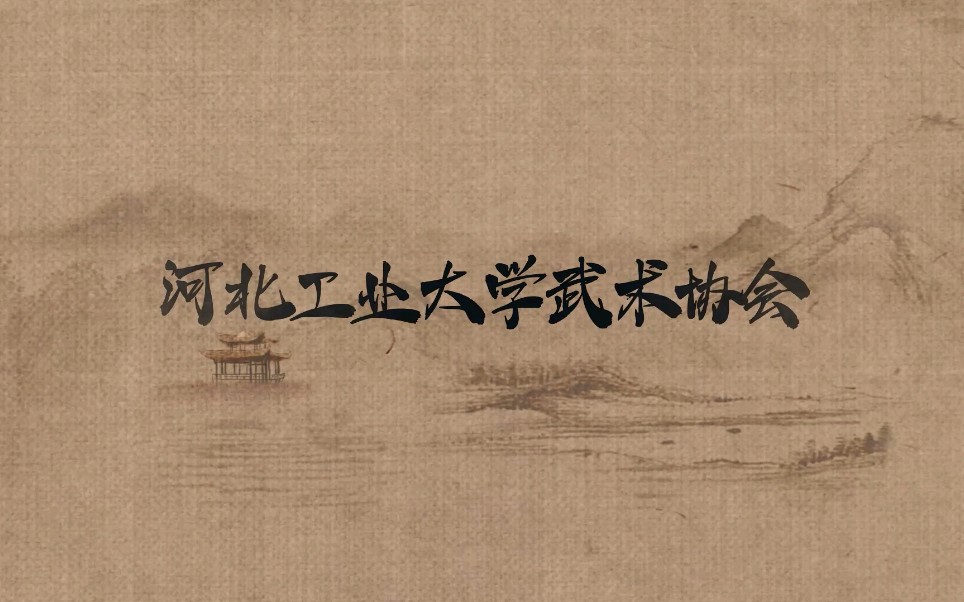 河北工业大学武术协会